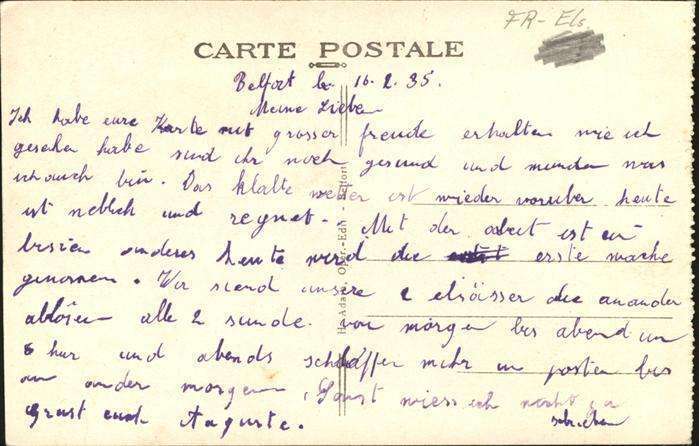 FR- Els.
CARTE POSTALE
Belfort le 16.2.35.
Meine Lieben
Ich habe eure Karte mit grosser freude erhalten wie ich
gesehen habe sind ihr noch gesund und munder was
ich auch bin. Das klalte weter ist wieder voruber heute
ist neblich und regnet. Mit der abeit ist ein
bisien anderes heute wird die erste wache
genomen. Wir siend unsere 2 elsässer die anander
ablösen alle 2 sunde. von morgen bis abend um
5 hur und abends schlaffen mihr in posten bis
am ander morgen. Sonst wiess ich nicht zu
schriben
Grust euch Auguste.
Adam, Opt.-Edit. Belfort